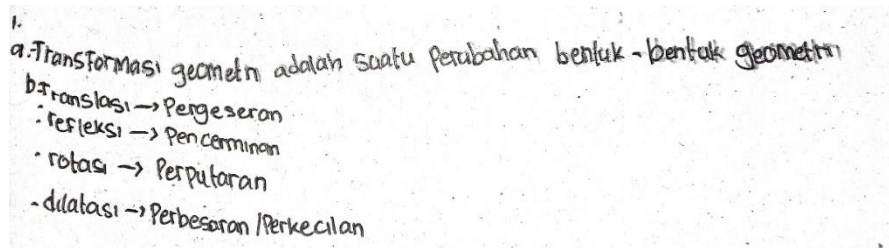 1.
a. Transformasi geometri adalah suatu perubahan bentuk-bentuk geometri
b. Translasi → Pergeseran
· refleksi → Pencerminan
· rotasi → Perputaran
- dilatasi → Perbesaran / Perkecilan